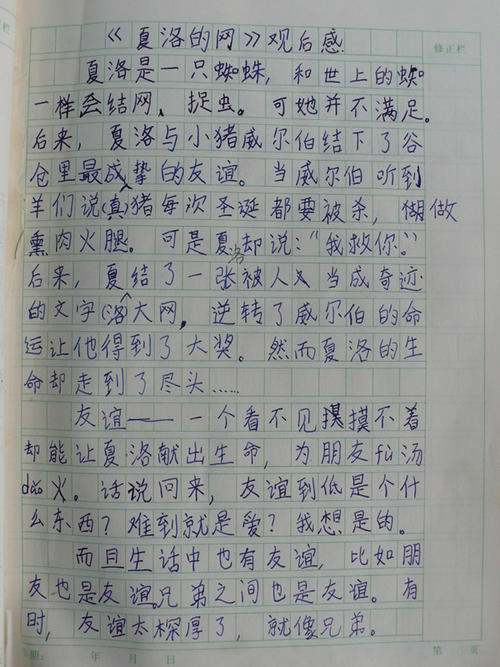 《夏洛的网》观后感
修正栏
夏洛是一只蜘蛛，和世上的蜘
一样会结网、捉虫。可她并不满足。
后来，夏洛与小猪威尔伯结下了谷
仓里最成挚的友谊。当威尔伯听到
羊们说(真)猪每次圣诞都要被杀，糊做
熏肉火腿。可是夏洛却说："我救你。"
后来，夏结了一张被人 当成奇迹
的文字(洛)大网，逆转了威尔伯的命
运让他得到了大奖。然而夏洛的生
命却走到了尽头……
友谊——一个看不见摸摸不着
却能让夏洛献出生命，为朋友fù汤
dǎo火。话说回来，友谊到低是个什
么东西？难到就是爱？我想是的。
而且生话中也有友谊，比如朋
友也是友谊。兄弟之间也是友谊。有
时，友谊太深厚了，就像兄弟。
期： 年 月 日 第 页